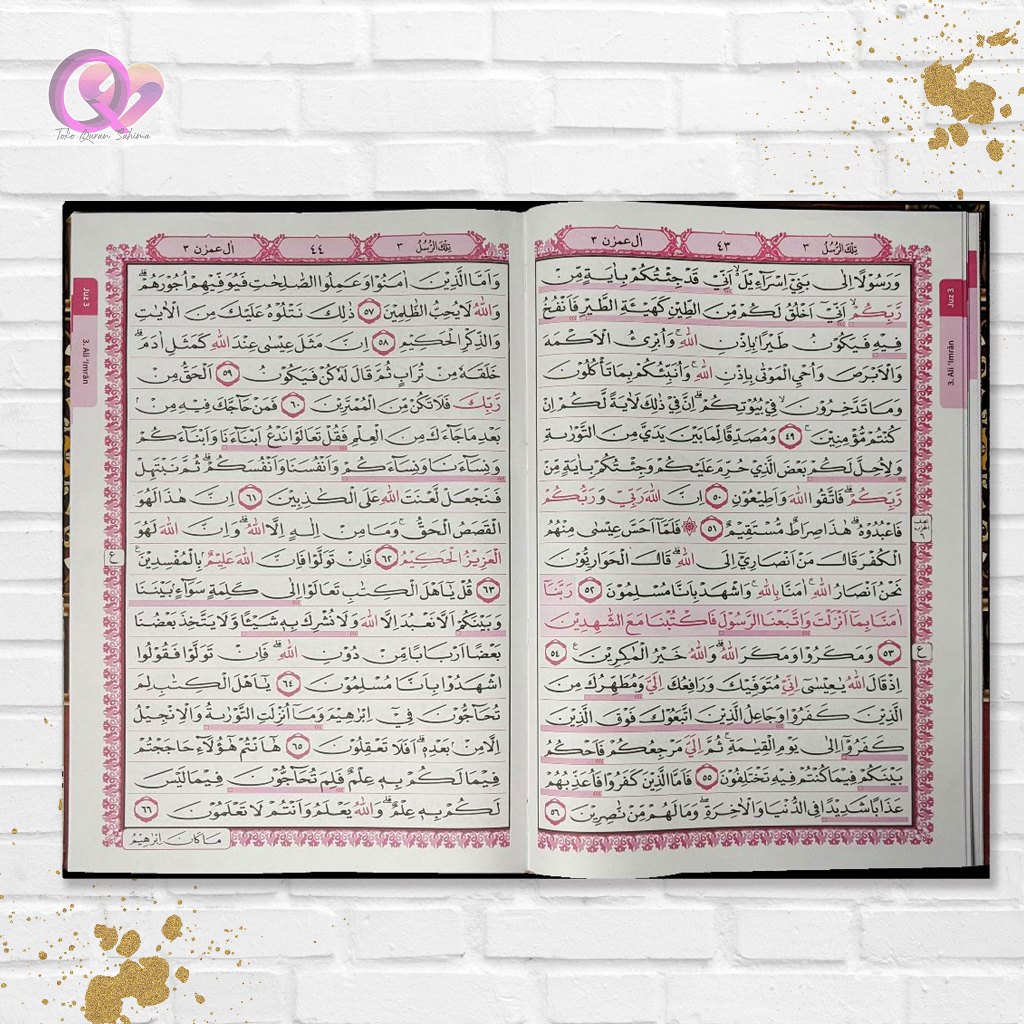 Toko Quran Sahima
تِلْكَ الرُّسُلُ ٣
٤٣
اٰل عمرٰن ٣
وَرَسُوْلًا اِلٰى بَنِيْٓ اِسْرَاۤءِيْلَ ەۙ اَنِّيْ قَدْ جِئْتُكُمْ بِاٰيَةٍ مِّنْ
رَّبِّكُمْ ۙاَنِّيْٓ اَخْلُقُ لَكُمْ مِّنَ الطِّيْنِ كَهَيْـَٔةِ الطَّيْرِ فَاَنْفُخُ
فِيْهِ فَيَكُوْنُ طَيْرًاۢ بِاِذْنِ اللّٰهِ ۚوَاُبْرِئُ الْاَكْمَهَ
وَالْاَبْرَصَ وَاُحْيِ الْمَوْتٰى بِاِذْنِ اللّٰهِ ۚوَاُنَبِّئُكُمْ بِمَا تَأْكُلُوْنَ
وَمَا تَدَّخِرُوْنَ ۙفِيْ بُيُوْتِكُمْ ۗاِنَّ فِيْ ذٰلِكَ لَاٰيَةً لَّكُمْ اِنْ
كُنْتُمْ مُّؤْمِنِيْنَ ۚ ٤٩ وَمُصَدِّقًا لِّمَا بَيْنَ يَدَيَّ مِنَ التَّوْرٰىةِ
وَلِاُحِلَّ لَكُمْ بَعْضَ الَّذِيْ حُرِّمَ عَلَيْكُمْ وَجِئْتُكُمْ بِاٰيَةٍ مِّنْ
رَّبِّكُمْۗ فَاتَّقُوا اللّٰهَ وَاَطِيْعُوْنِ ٥٠ اِنَّ اللّٰهَ رَبِّيْ وَرَبُّكُمْ
فَاعْبُدُوْهُ ۗهٰذَا صِرَاطٌ مُّسْتَقِيْمٌ ٥١ ۞ فَلَمَّآ اَحَسَّ عِيْسٰى مِنْهُمُ
الْكُفْرَ قَالَ مَنْ اَنْصَارِيْٓ اِلَى اللّٰهِ ۗقَالَ الْحَوَارِيُّوْنَ
نَحْنُ اَنْصَارُ اللّٰهِ ۚاٰمَنَّا بِاللّٰهِ ۚوَاشْهَدْ بِاَنَّا مُسْلِمُوْنَ ٥٢ رَبَّنَآ
اٰمَنَّا بِمَآ اَنْزَلْتَ وَاتَّبَعْنَا الرَّسُوْلَ فَاكْتُبْنَا مَعَ الشّٰهِدِيْنَ
٥٣ وَمَكَرُوْا وَمَكَرَ اللّٰهُ ۗوَاللّٰهُ خَيْرُ الْمٰكِرِيْنَ ࣖ ٥٤
اِذْ قَالَ اللّٰهُ يٰعِيْسٰٓى اِنِّيْ مُتَوَفِّيْكَ وَرَافِعُكَ اِلَيَّ وَمُطَهِّرُكَ مِنَ
الَّذِيْنَ كَفَرُوْا وَجَاعِلُ الَّذِيْنَ اتَّبَعُوْكَ فَوْقَ الَّذِيْنَ
كَفَرُوْٓا اِلٰى يَوْمِ الْقِيٰمَةِ ۚثُمَّ اِلَيَّ مَرْجِعُكُمْ فَاَحْكُمُ
بَيْنَكُمْ فِيْمَا كُنْتُمْ فِيْهِ تَخْتَلِفُوْنَ ٥٥ فَاَمَّا الَّذِيْنَ كَفَرُوْا فَاُعَذِّبُهُمْ
عَذَابًا شَدِيْدًا فِى الدُّنْيَا وَالْاٰخِرَةِ ۖوَمَا لَهُمْ مِّنْ نّٰصِرِيْنَ ٥٦
ع
Juz 3
3. Ali 'Imrân
تِلْكَ الرُّسُلُ ٣
٤٤
اٰل عمرٰن ٣
وَاَمَّا الَّذِيْنَ اٰمَنُوْا وَعَمِلُوا الصّٰلِحٰتِ فَيُوَفِّيْهِمْ اُجُوْرَهُمْ ۗ
وَاللّٰهُ لَا يُحِبُّ الظّٰلِمِيْنَ ٥٧ ذٰلِكَ نَتْلُوْهُ عَلَيْكَ مِنَ الْاٰيٰتِ
وَالذِّكْرِ الْحَكِيْمِ ٥٨ اِنَّ مَثَلَ عِيْسٰى عِنْدَ اللّٰهِ كَمَثَلِ اٰدَمَ ۗ
خَلَقَهٗ مِنْ تُرَابٍ ثُمَّ قَالَ لَهٗ كُنْ فَيَكُوْنُ ٥٩ اَلْحَقُّ مِنْ
رَّبِّكَ فَلَا تَكُنْ مِّنَ الْمُمْتَرِيْنَ ٦٠ فَمَنْ حَاۤجَّكَ فِيْهِ مِنْۢ
بَعْدِ مَا جَاۤءَكَ مِنَ الْعِلْمِ فَقُلْ تَعَالَوْا نَدْعُ اَبْنَاۤءَنَا وَاَبْنَاۤءَكُمْ
وَنِسَاۤءَنَا وَنِسَاۤءَكُمْ وَاَنْفُسَنَا وَاَنْفُسَكُمْۗ ثُمَّ نَبْتَهِلْ
فَنَجْعَلْ لَّعْنَتَ اللّٰهِ عَلَى الْكٰذِبِيْنَ ٦١ اِنَّ هٰذَا لَهُوَ
الْقَصَصُ الْحَقُّ ۚوَمَا مِنْ اِلٰهٍ اِلَّا اللّٰهُ ۗوَاِنَّ اللّٰهَ لَهُوَ
الْعَزِيْزُ الْحَكِيْمُ ٦٢ فَاِنْ تَوَلَّوْا فَاِنَّ اللّٰهَ عَلِيْمٌۢ بِالْمُفْسِدِيْنَ ࣖ
٦٣ قُلْ يٰٓاَهْلَ الْكِتٰبِ تَعَالَوْا اِلٰى كَلِمَةٍ سَوَاۤءٍۢ بَيْنَنَا
وَبَيْنَكُمْ اَلَّا نَعْبُدَ اِلَّا اللّٰهَ وَلَا نُشْرِكَ بِهٖ شَيْـًٔا وَّلَا يَتَّخِذَ بَعْضُنَا
بَعْضًا اَرْبَابًا مِّنْ دُوْنِ اللّٰهِ ۗفَاِنْ تَوَلَّوْا فَقُوْلُوا
اشْهَدُوْا بِاَنَّا مُسْلِمُوْنَ ٦٤ يٰٓاَهْلَ الْكِتٰبِ لِمَ
تُحَاۤجُّوْنَ فِيْٓ اِبْرٰهِيْمَ وَمَآ اُنْزِلَتِ التَّوْرٰىةُ وَالْاِنْجِيْلُ
اِلَّا مِنْۢ بَعْدِهٖۗ اَفَلَا تَعْقِلُوْنَ ٦٥ هٰٓاَنْتُمْ هٰٓؤُلَاۤءِ حَاجَجْتُمْ
فِيْمَا لَكُمْ بِهٖ عِلْمٌ فَلِمَ تُحَاۤجُّوْنَ فِيْمَا لَيْسَ
لَكُمْ بِهٖ عِلْمٌ ۗوَاللّٰهُ يَعْلَمُ وَاَنْتُمْ لَا تَعْلَمُوْنَ ٦٦
مَا كَانَ اِبْرٰهِيْمُ
ع
Juz 3
3. Ali 'Imrân